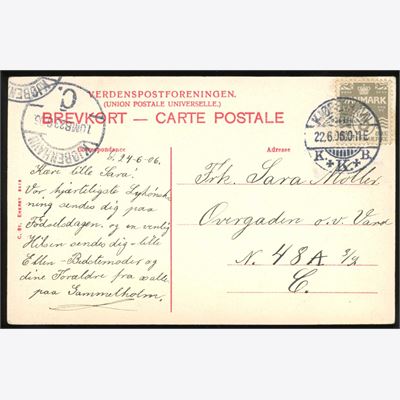 VERDENSPOSTFORENINGEN.
(UNION POSTALE UNIVERSELLE.)
BREVKORT — CARTE POSTALE
Correspondance
Adresse
d. 24-6-06.
Kære lille Sara!
Vor hjærteligste Lykønsk-
ning sendes dig paa
Fødselsdagen, og en venlig
Hilsen sendes dig - lille
Ellen - Bedstemoder og
dine Forældre fra alle
paa Gammelholm.
Frk. Sara Møller.
Overgaden o.v. Vand
N. 48 A 3/4
C.
KJØBENHAVN
22.6.06.
K K B
DANMARK
KJØBENHAVN
C.